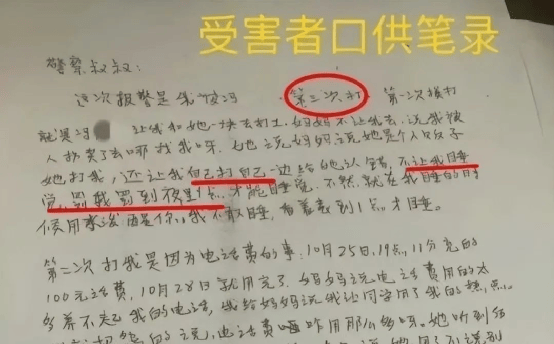 受害者口供笔录
警察叔叔:
这次报警是我被冯 第二次打 第一次被打
就是冯 让我和她一块去打工,妈妈不让我去,说我被
人拐卖了去哪找我呀,她说妈妈说她是个人贩子
她打我,还让我自己打自己一边给她认错,不让我睡
觉,罚我罚到夜里1点,才能睡觉,不然,就在我睡的时
候用水泼 我不敢睡,看着表到1点才睡。
第二次打我是因为电话费的事:10月25日,19点,11分充的
100元话费,10月28日就用完了,妈妈说电话费用的太
多养不起我的电话,我给妈妈说我让同学用了我的热点。
的说,电话费 咋用那么多呀。她听到后